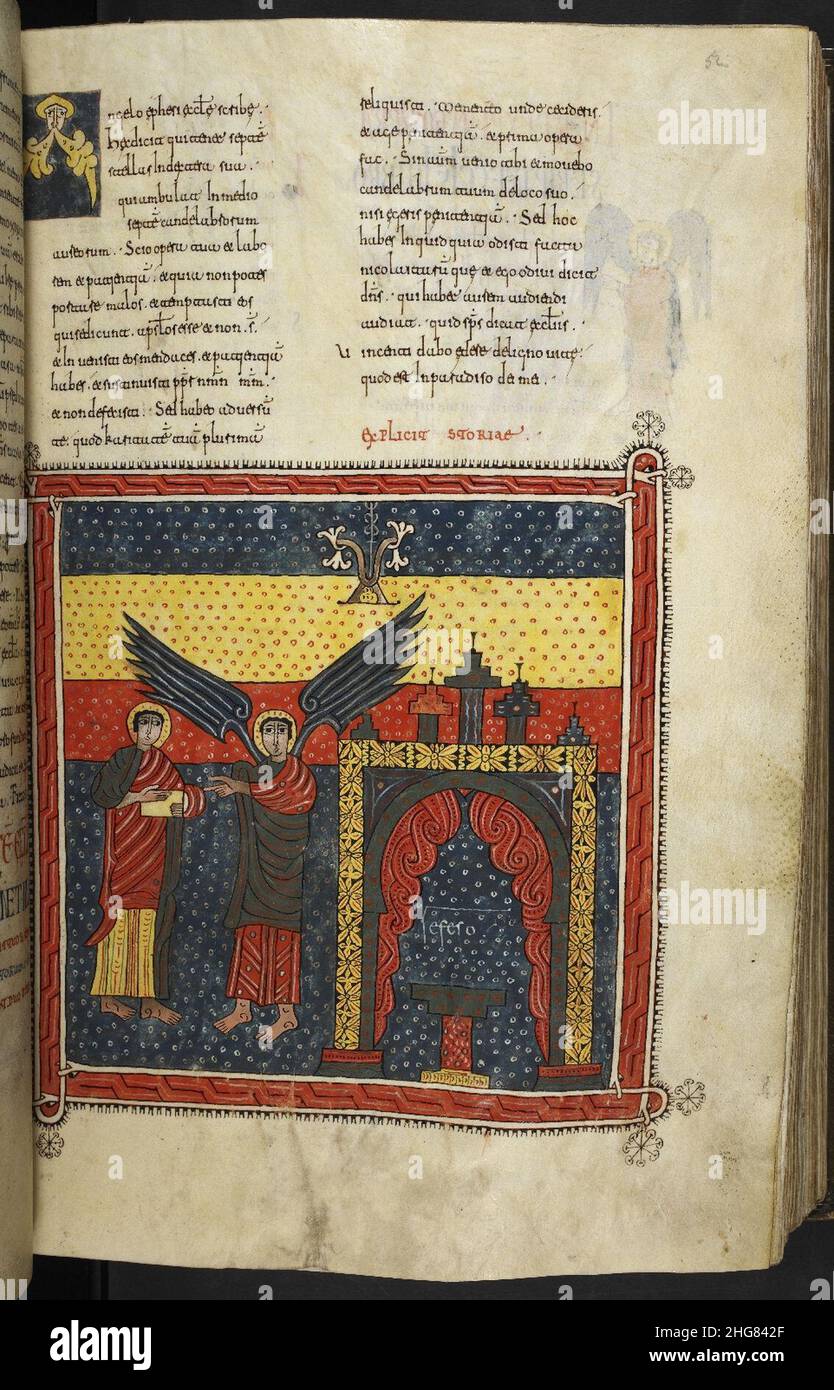 Angelo ephesi eccłe scribe.
Hec dicit qui tenet septē
stellas In dextera sua.
qui ambulat In medio
septē candelabrorum
aureorum. Scio opera tua et labo
rem et patientiā. et quia non potes
portare malos. et temptasti eos
qui se dicunt apstłos esse et non s̄.
et Invenisti eos mendaces. et patientiā
habes. et sustinuisti pp̄r nm̄n
et non defecisti. Sed habeo adversū
te. quod karitatē tuā plurimā
reliquisti. Memento unde cecideris.
et age penitentiā. et prima opera
fac. Sin aūm venio tibi et movebo
candelabrum tuum de loco suo.
nisi egeris penitentiā. Sed hoc
habes Inquid quia odisti facta
nicolaitarū que et ego odivi dicit
dn̄s. qui habet aurem audiendi
audiat. quid sp̄s dicat eccłiis.
Vincenti dabo edere de ligno vite.
quod est In paradiso dei mei.
EXPLICIT STORIAE.
alamy
alamy
alamy
alamy
Image ID: 2HG842F
www.alamy.com